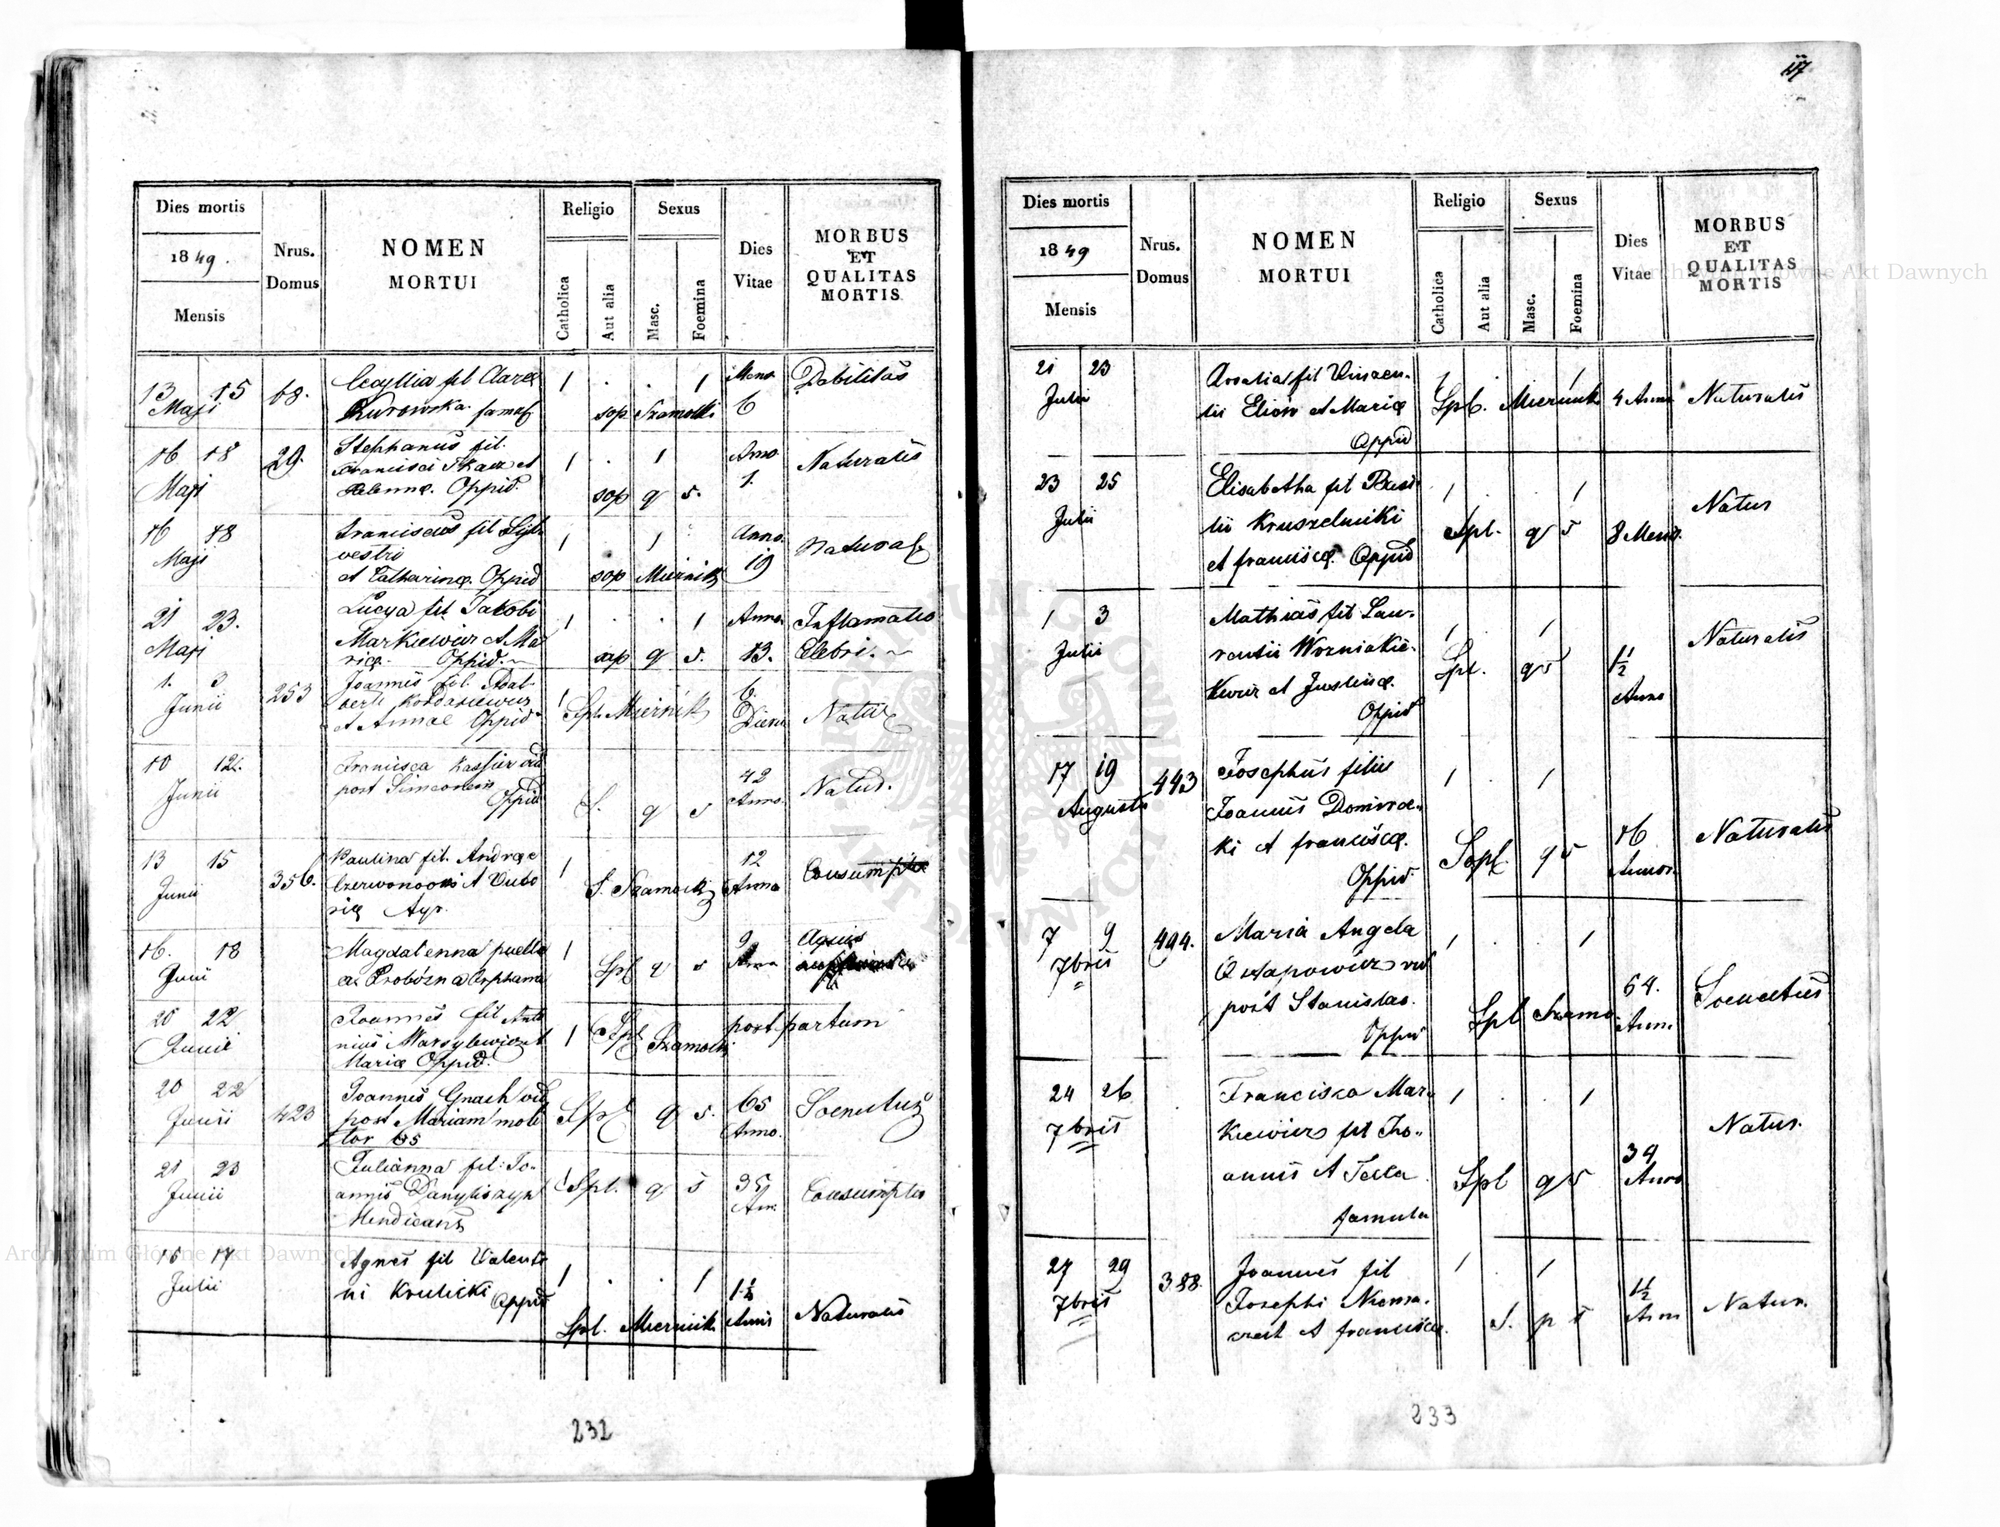 117
Dies mortis
1849.
Mensis
Nrus.
Domus
NOMEN
MORTUI
Religio
Catholica
Aut alia
Sexus
Masc.
Foemina
Dies
Vitae
MORBUS
ET
QUALITAS
MORTIS.
13 15 68. fil Clarae 1 . . 1 Mens Debilitas
Maji Kurowska famul sop Szamocki 6
16 18 29. Stephanus fil. 1 . 1 Anno Naturalis
Francisci et 1.
Maji Helenna. Oppid. sop q s.
16 18 Franciscus fil Syl 1 . 1 Anno. Natural
Maji vestri 19
et Catharina Oppid sop Miernik
21 23. Lucya fil Jakobi 1 . . 1 Anno. Inflamatio
Maji Markiewicz et Ma sop q s. 13. Celebri.
ria. Oppid.
1. 3 253 Joannes fil. Adal 1 6.
Junii berti Spl. Miernik Dieru Natur
et Annae Oppid
10 12. Francisca vid 42
Junii post Simeonem S. q s Anno. Natur.
Oppid
13 15 356. Paulina fil. Andrae 1 12
Junii Czerwonooki et Victo S. Szamocki Anno
ria Agr.
16. 18 Magdalenna puella 1 9
Junii Spl q s Anno
20 22 Joannes fil Anto 1 Spl Szamocki post partum
Junii nius
Maria Oppid.
20 22 423 Joannes Gnach vid Spl q s. 65 Senectus
Junii post Mariam moli Anno.
tor 65
21 23 Julianna fil: Jo- 1 Spl. q s 35 Consumptio
Junii annis Danyliszyn Ann.
Mendicans
15 17 Agnes fil Valenti 1 . . 1 1½
Julii ni Krulicki Anni Naturalis
Oppid Spl. Miernik
232
Dies mortis
1849
Mensis
Nrus.
Domus
NOMEN
MORTUI
Religio
Catholica
Aut alia
Sexus
Masc.
Foemina
Dies
Vitae
MORBUS
ET
QUALITAS
MORTIS
21 23 fil Vincen- 1 . 1
Julii tii et Maria Spl. Miernik 4 Anni Naturalis
Oppid
23 25 Elisabetha fil Basi- 1 . . 1 Natur
Julii lii Kruszelnicki Spl. q s 8 Mens.
et francisca. Oppid
1 3 Mathias fil Lau- 1 . 1 Naturalis
Julii rentii Wozniakie- Spl. q s 1½
kewicz et Justina. Anno
Oppid
17 19 443 Josephus filius 1 . 1
Augusti Joannis 16 Naturalis
ki et francisca. Sopl. q s Annor.
Oppid
7 9 494. Maria Angela 1 . . 1
7bris vid 64. Senectus
post Stanislao. Spl Szamo Anni
Oppid
24 26 Francisca Mar- 1 . . 1
7bris kiewicz fil Jo- 34 Natur.
annis et Tecla Spl q s Anno
famula
27 29 388. Joannes fil 1 . 1 1½
7bris Josephi Anni Natur.
et francisca. S. p s
233
Archiwum Główne Akt Dawnych
Archiwum Główne Akt Dawnych